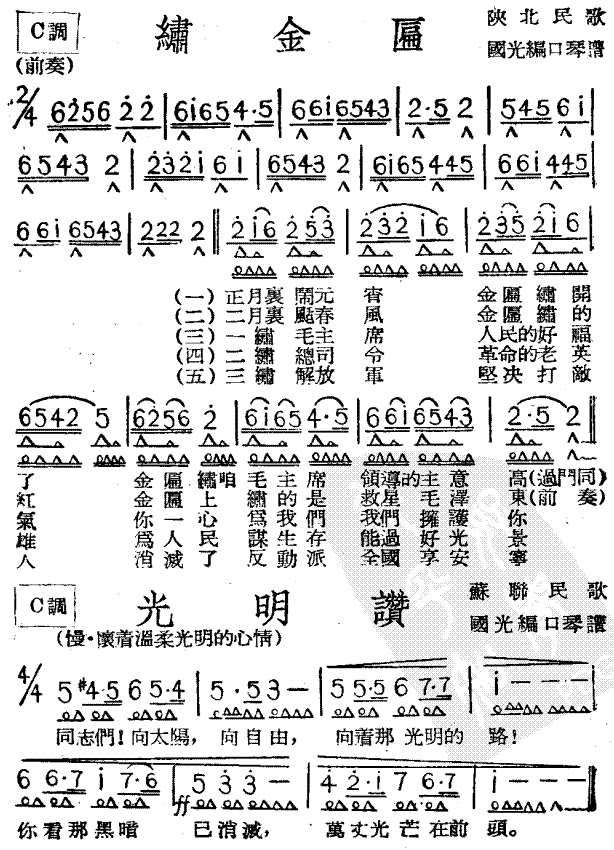 C調 繡金匾 陝北民歌
國光編口琴譜
(前奏)
2/4 6256 22 | 6i654·5 | 66i6543 | 2·52 | 5456i |
6543 2 | 232i6i | 6543 2 | 6i65445 | 66i445 |
66i 6543 | 222 2 || 2i6 253 | 232 i6 | 235 2i6 |
(一)正月裏鬧元宵 金匾繡開
(二)二月裏颳春風 金匾繡的
(三)一繡毛主席 人民的好福
(四)二繡總司令 革命的老英
(五)三繡解放軍 堅决打敵
6542 5 | 6256 2 | 6i65 4·5 | 66i6543 | 2·5 2 ||
了 金匾繡咱毛主席 領導的主意高(過門同
紅 金匾上繡的是 救星毛澤東(前奏)
氣 你一心爲我們 我們擁護你
雄 爲人民謀生存 能過好光景
人 消滅了反動派 全國享安寧
C調 光明讚 蘇聯民歌
(慢·懷着溫柔光明的心情) 國光編口琴譜
4/4 5 #4·5 6 5·4 | 5·53— | 5 5·5 6 7·7 | i——— |
同志們!向太陽, 向自由, 向着那光明的路!
6 6·7 i 7·6 | 533— | 4 2·i 7 6·7 | i——— ||
ff
你看那黑暗 已消滅, 萬丈光芒在前頭。